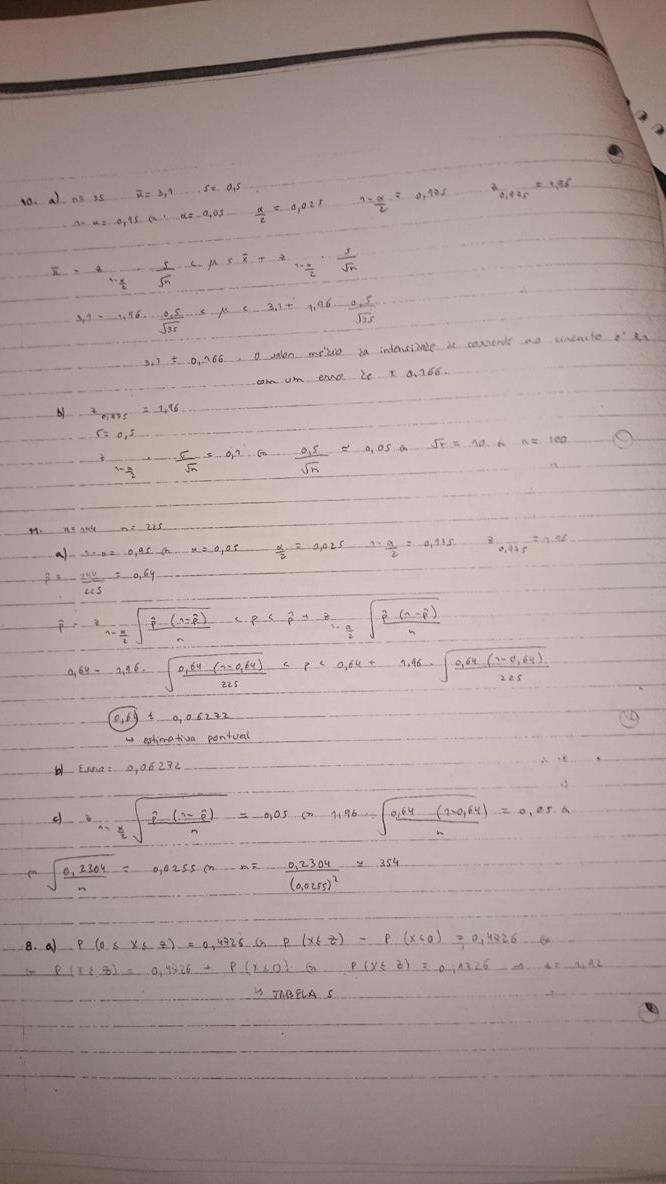 10. a) n= 35 x̄= 3,1 s= 0,5
1-α= 0,95 (=) α=0,05 α/2 = 0,025 1-α/2 = 0,975 z_{0,975} = 1,96
x̄ - z_{1-α/2} · s/√n < μ < x̄ + z_{1-α/2} · s/√n
3,1 - 1,96 · 0,5/√35 < μ < 3,1 + 1,96 · 0,5/√35
3,1 ± 0,166 . O valor médio da intensidade de corrente no circuito é
com um erro de ± 0,166.
b) z_{0,975} = 1,96
s= 0,5
z_{1-α/2} · s/√n = 0,1 (=) 0,5/√n ≈ 0,05 (=) √n = 10 (=) n= 100
11. x= 144 n= 225
a) 1-α= 0,95 (=) α= 0,05 α/2 = 0,025 1-α/2 = 0,975 z_{0,975} = 1,96
p̂ = 144/225 = 0,64
p̂ - z_{1-α/2} √(p̂ (1-p̂)/n) < p < p̂ + z_{1-α/2} √(p̂ (1-p̂)/n)
0,64 - 1,96 · √(0,64 (1-0,64)/225) < p < 0,64 + 1,96 · √(0,64 (1-0,64)/225)
0,64 ± 0,06272
↳ estimativa pontual
b) Erro= 0,06272
c) z_{1-α/2} √(p̂ (1-p̂)/n) = 0,05 (=) 1,96 · √(0,64 (1-0,64)/n) = 0,05 (=)
(=) √(0,2304/n) = 0,0255 (=) n= 0,2304/(0,0255)² ≈ 354
8. a) P (0 ≤ X ≤ z) = 0,4726 (=) P (X≤ z) - P (X<0) = 0,4726 (=)
(=) P (X ≤ z) = 0,4726 + P (X≤0) (=) P (X≤ z) = 0,9726 → z = 1,92
↳ TABELA 5